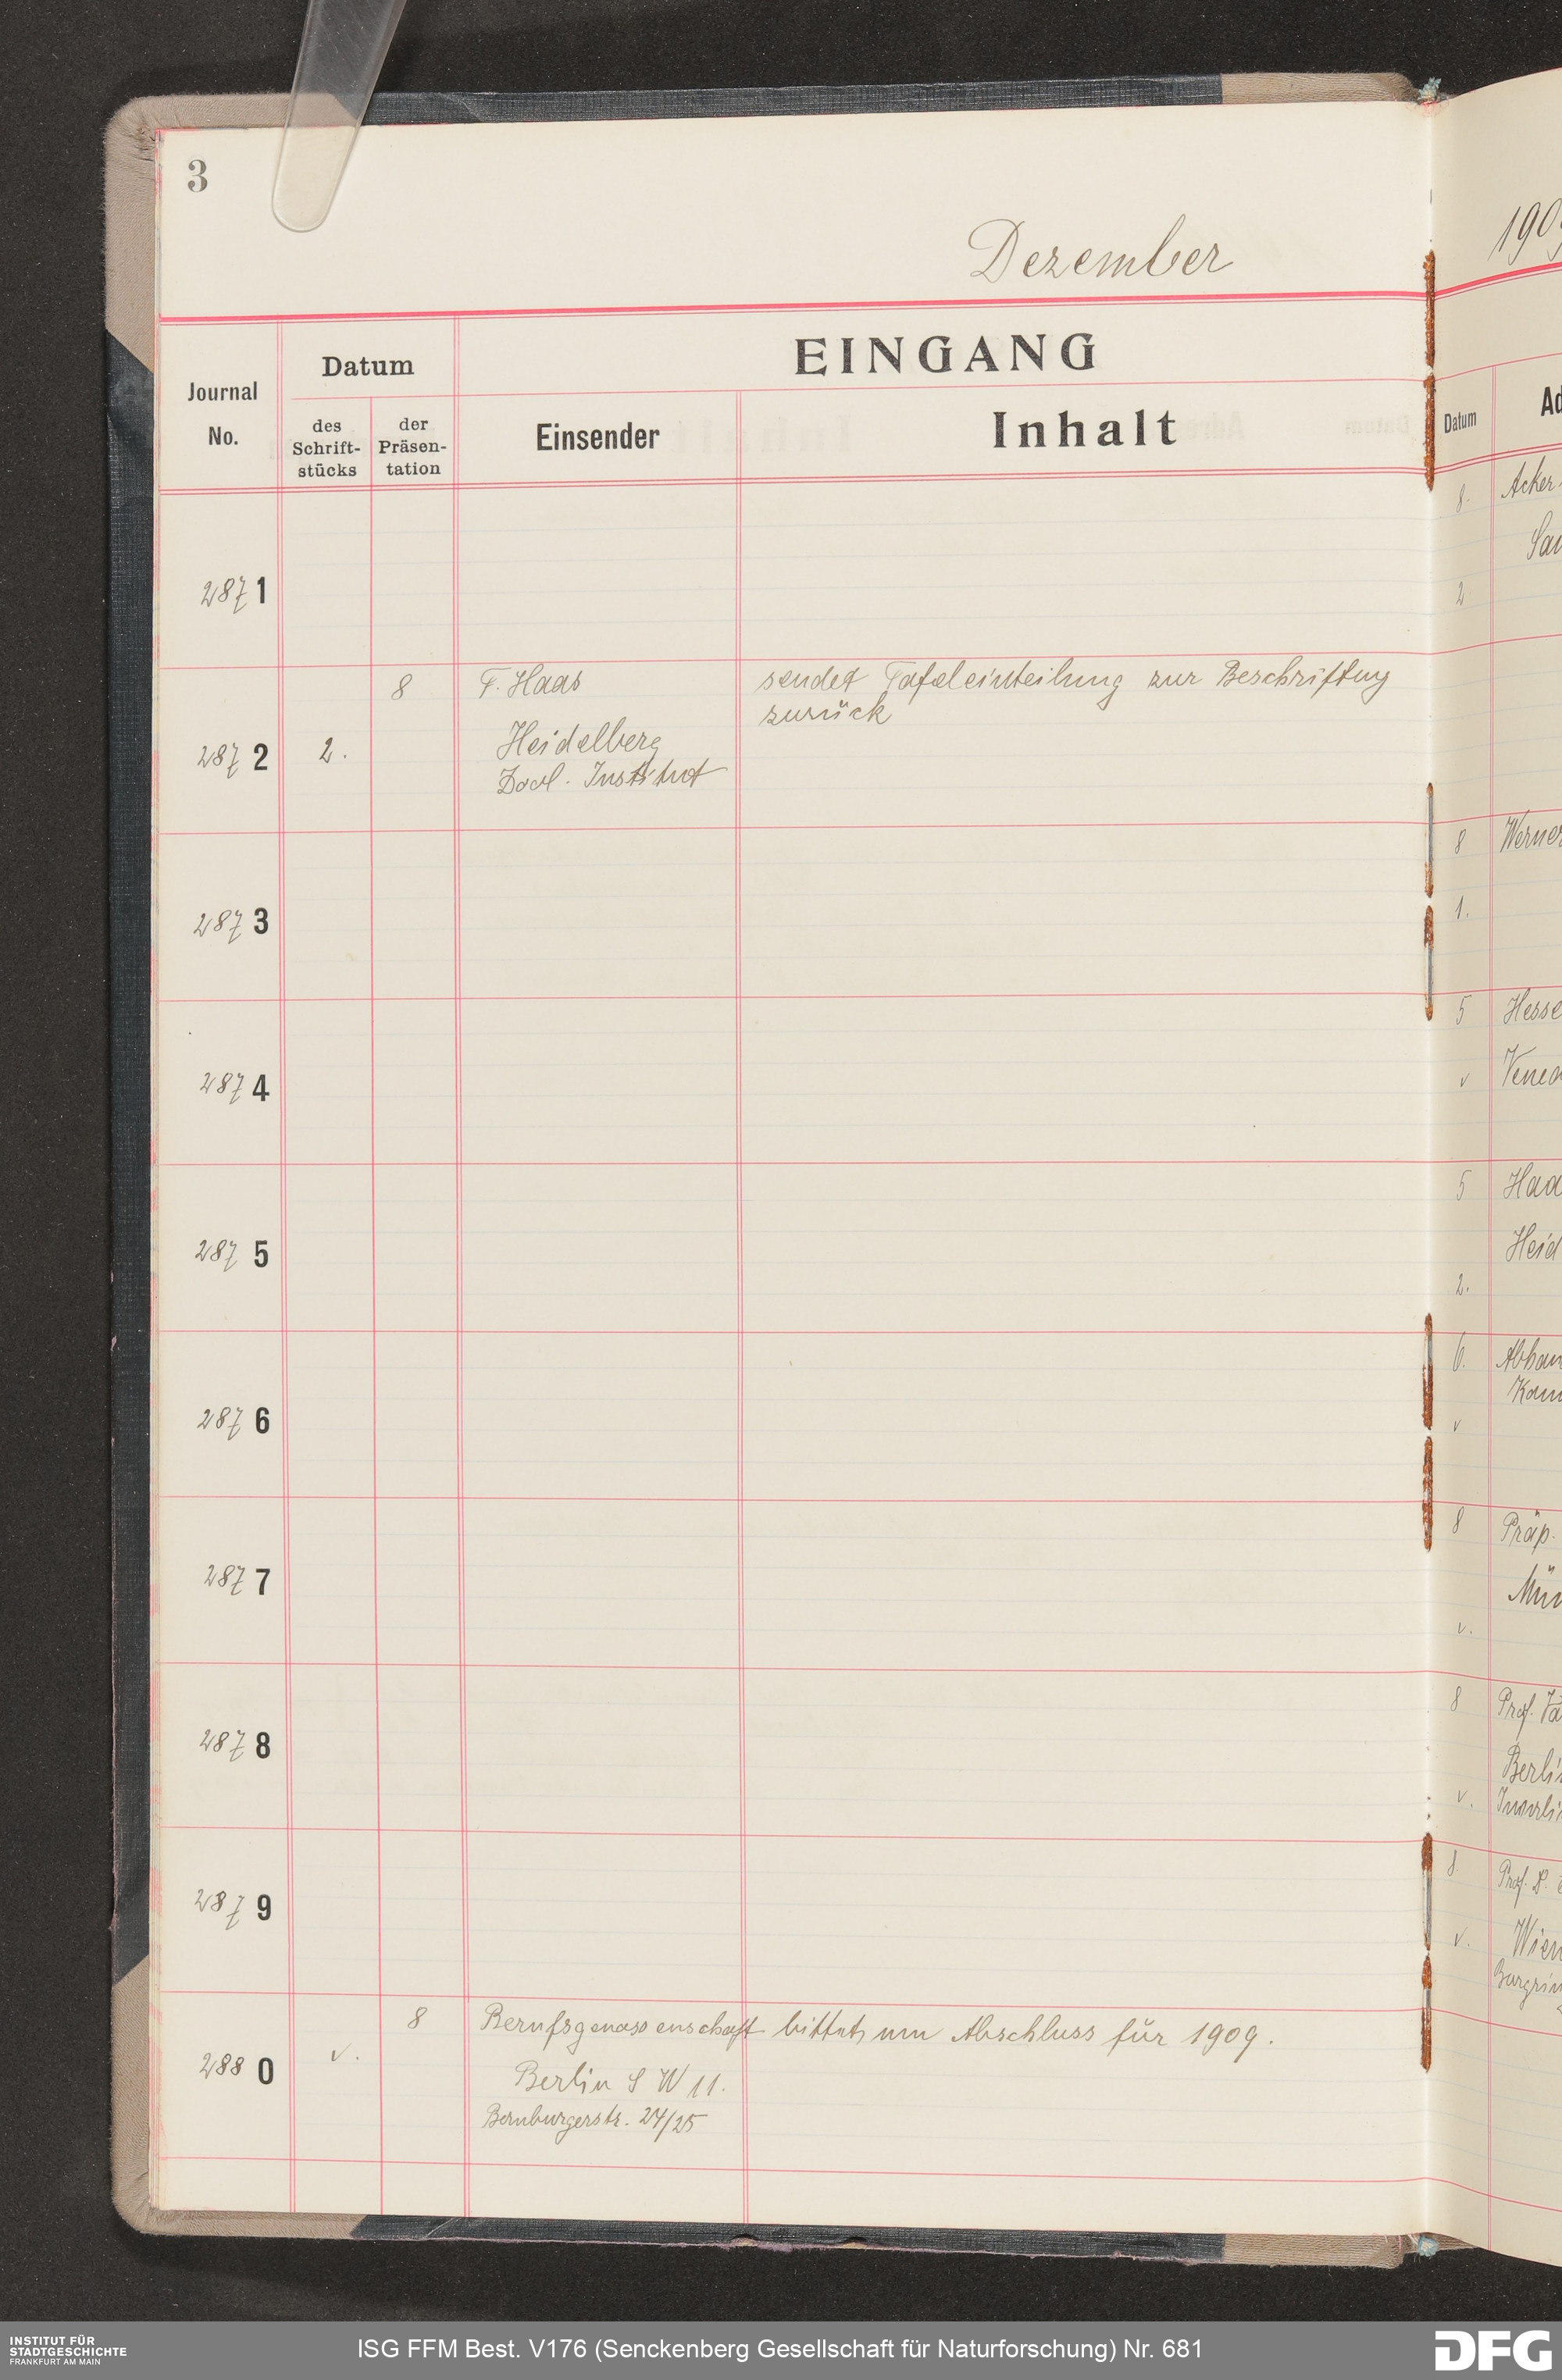 3
Dezember
EINGANG
Journal No.
Datum
des Schrift-stücks
der Präsen-tation
Einsender
Inhalt
2871
2872
2.
8
F. Haas
Heidelberg
Zool. Institut
sendet Tafeleinteilung zur Beschriftung
zurück
2873
2874
2875
2876
2877
2878
2879
2880
v.
8
Berufsgenossenschaft bittet um Abschluss für 1909.
Berlin S W 11.
Bernburgerstr. 24/25
190
Datum
Ad
8.
Acker
2
8
Werner
1.
5
Hesse
v
5
Haa
Heid
2.
6.
v
8
Präp.
v.
8
Prof.
Berli
v.
8.
Prof.
v.
Wien
Burgrin
INSTITUT FÜR
STADTGESCHICHTE
FRANKFURT AM MAIN
ISG FFM Best. V176 (Senckenberg Gesellschaft für Naturforschung) Nr. 681
DFG